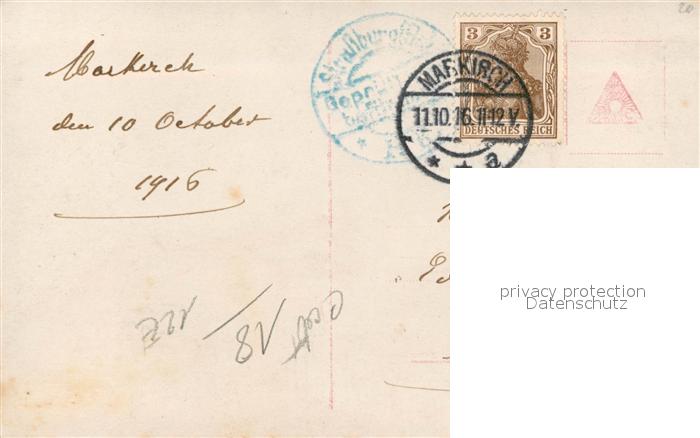 Markirch
den 10 October
1916
Straßburg
Geprüft
3
DEUTSCHES REICH
MARKIRCH
11.10.16.11-12 V.
* * a
18
12€
20
privacy protection
Datenschutz